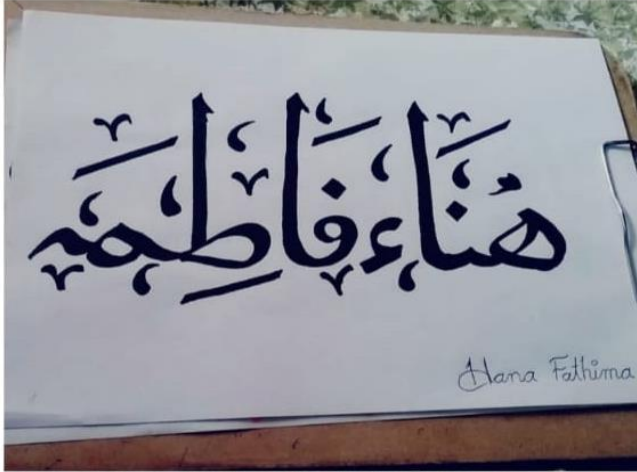 هُنَاء فَاطِمَه
Hana Fathima